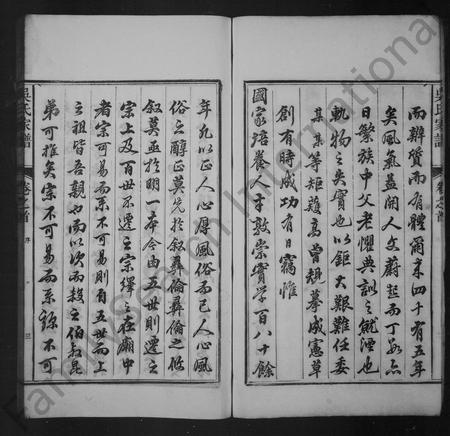 吳氏家譜
卷之首
而辨質而有體爾來四十有五年
矣風氣益開人文蔚起而丁口亦
日繁族中父老懼典訓之就湮也
軌物之失實也以鉅大艱難任委
某某等矩蒦高曾規摹咸憲草
創有時成功有日竊惟
國家培養人才敦崇實學百八十餘
年凡以正人心厚風俗而已人心風
俗之醇正莫先於敘彝倫彝倫之攸
敘莫亟於明一本今由五世則遷之
宗上及百世不遷之宗繹之在廟中
者宗可易而系不可易則有五世而上
之祖皆吾親也而以次而殺之伯叔昆
弟可推矣宗不可易而系錄不可
吳氏家譜
卷之首
序
三
Family Search International